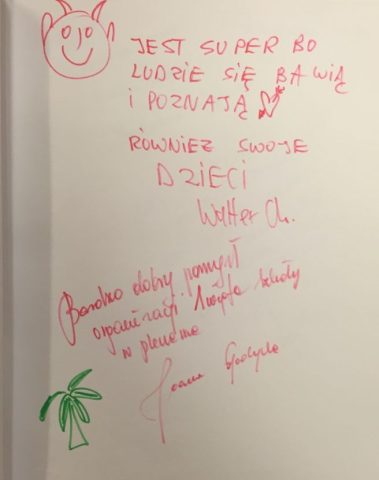 JEST SUPER BO
LUDZIE SIĘ BAWIĄ
I POZNAJĄ
RÓWNIEZ SWOJE
DZIECI
Walter Ch.
Bardzo dobry pomysł
organizacji Święta szkoły
w plenerze
Joanna